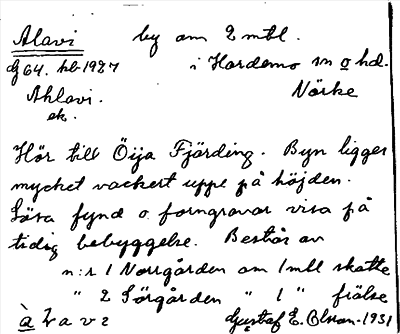 Alavi by om 2 mtl.
dj 64. hb 1927 i Hardemo sn o hd.
Ahlavi. Närke
ek.
Hör till Öija Fjärding. Byn ligger
mycket vackert uppe på höjden.
Lösa fynd o. forngravar visa på
tidig bebyggelse. Består av
n:r 1 Norrgården om 1 mtl skatte
" 2 Sörgården " 1 " frälse
Gustaf E. Olsson. 1931